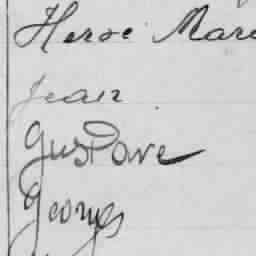 Herve Mare
Jean
Gustave
Georges